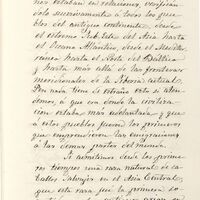 nos estaban en relaciones, verificán
solo sucesivamente á todos los pue
blos del antiguo continente, desde
el estremo Sud. Este del Asia hasta
el Oceano Atlántico, desde el Mediter
raneo hasta el Norte del Báltico
y hasta más allá de las fronteras
meridionales de la Siberia actual.
Por nada tiene de estraño esto si aten
demos, á que era donde la civiliza
cion estaba mas adelantada y que
á estos pueblos fueron los primeros
que emprendieron las emigraciones
á las demas partes del mundo.
Si admitimos desde los prime
ros tiempos una raza natural de ca
ballos salvajes en el Asia Central,
que esta raza fué la primera so